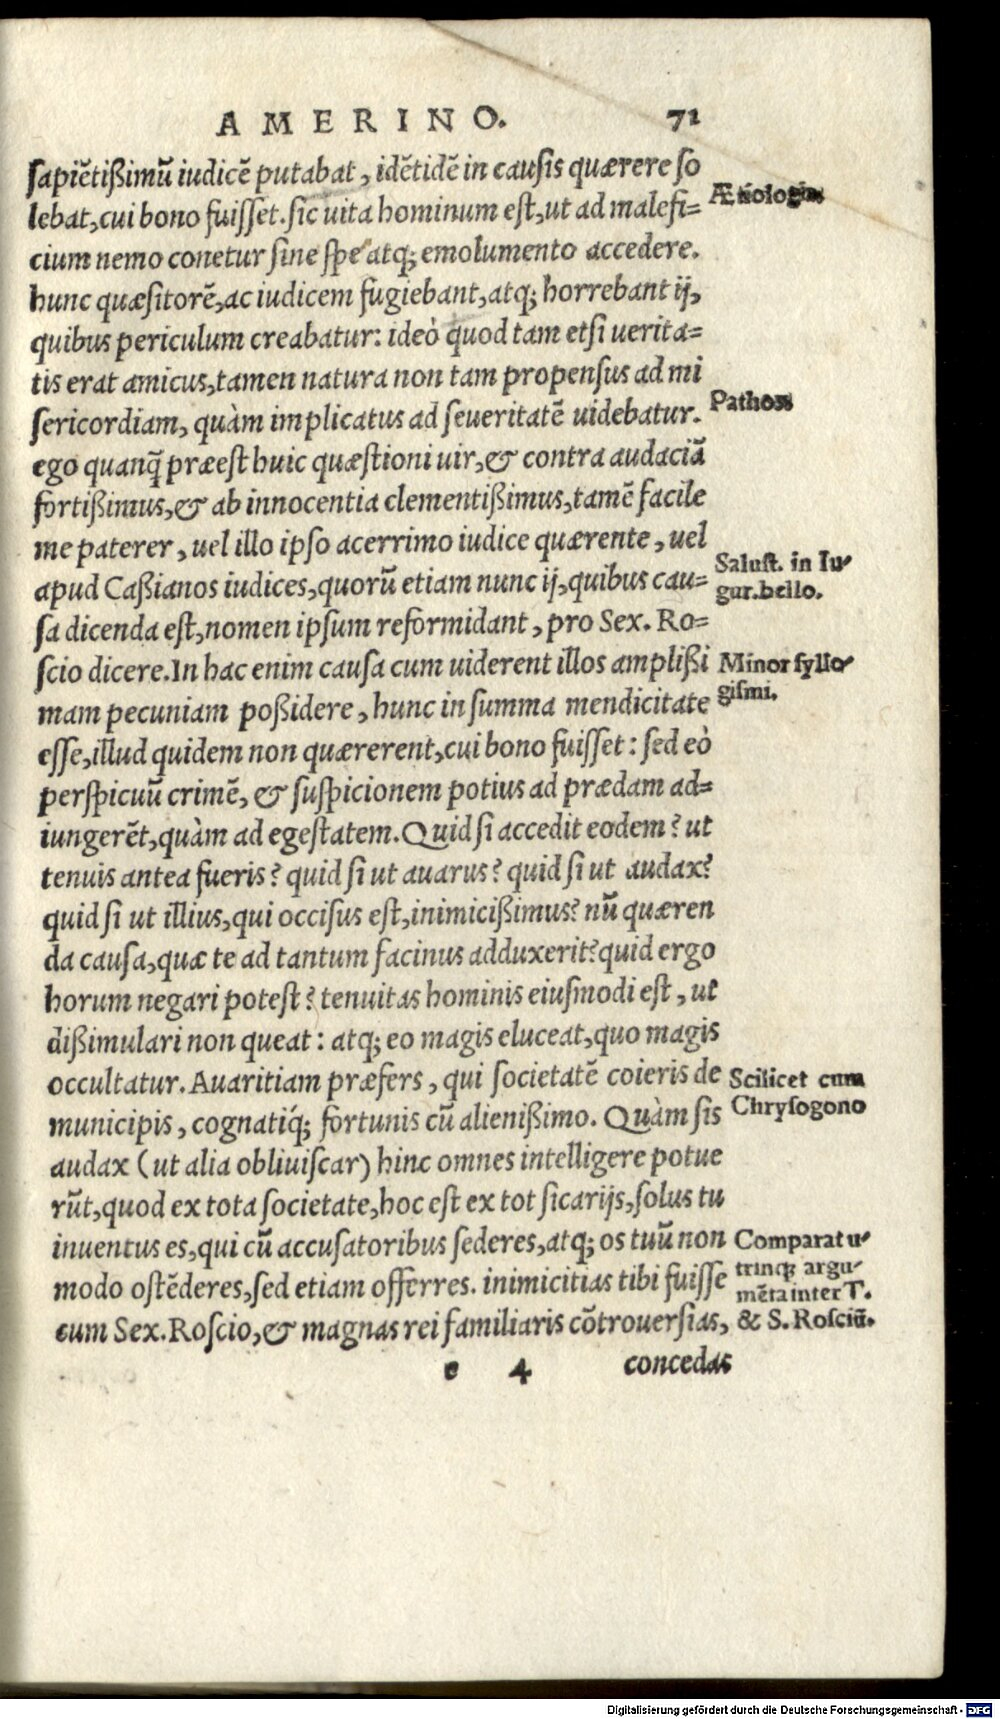 AMERINO. 71
sapiẽtißimũ iudicẽ putabat, idẽtidẽ in causis quærere so
Ætiologia
lebat, cui bono fuisset. sic uita hominum est, ut ad malefi=
cium nemo conetur sine spe atq; emolumento accedere.
hunc quæsitorẽ, ac iudicem fugiebant, atq; horrebant ij,
quibus periculum creabatur: ideò quod tam etsi uerita=
tis erat amicus, tamen natura non tam propensus ad mi
Pathos
sericordiam, quàm implicatus ad seueritatẽ uidebatur.
ego quanq̃ præest huic quæstioni uir, & contra audaciã
fortißimus, & ab innocentia clementißimus, tamẽ facile
me paterer, uel illo ipso acerrimo iudice quærente, uel
Salust. in Iu-
apud Caßianos iudices, quorũ etiam nunc ij, quibus cau=
gur. bello.
sa dicenda est, nomen ipsum reformidant, pro Sex. Ro=
scio dicere. In hac enim causa cum uiderent illos amplißi
Minor syllo-
mam pecuniam poßidere, hunc in summa mendicitate
gismi.
esse, illud quidem non quærerent, cui bono fuisset: sed eò
perspicuũ crimẽ, & suspicionem potius ad prædam ad=
iungerẽt, quàm ad egestatem. Quid si accedit eodem? ut
tenuis antea fueris? quid si ut auarus? quid si ut audax?
quid si ut illius, qui occisus est, inimicißimus? nũ quæren
da causa, quæ te ad tantum facinus adduxerit? quid ergo
horum negari potest? tenuitas hominis eiusmodi est, ut
dißimulari non queat: atq; eo magis eluceat, quo magis
occultatur. Auaritiam præfers, qui societatẽ coieris de
Scilicet cum
municipis, cognatiq́; fortunis cũ alienißimo. Quàm sis
Chrysogono
audax (ut alia obliuiscar) hinc omnes intelligere potue
rũt, quod ex tota societate, hoc est ex tot sicarijs, solus tu
inuentus es, qui cũ accusatoribus sederes, atq; os tuũ non
Comparat u-
modo ostẽderes, sed etiam offerres. inimicitias tibi fuisse
trinq; argu-
mẽta inter T.
cum Sex. Roscio, & magnas rei familiaris cõtrouersias,
& S. Rosciũ.
e 4 concedas
Digitalisierung gefördert durch die Deutsche Forschungsgemeinschaft - DFG